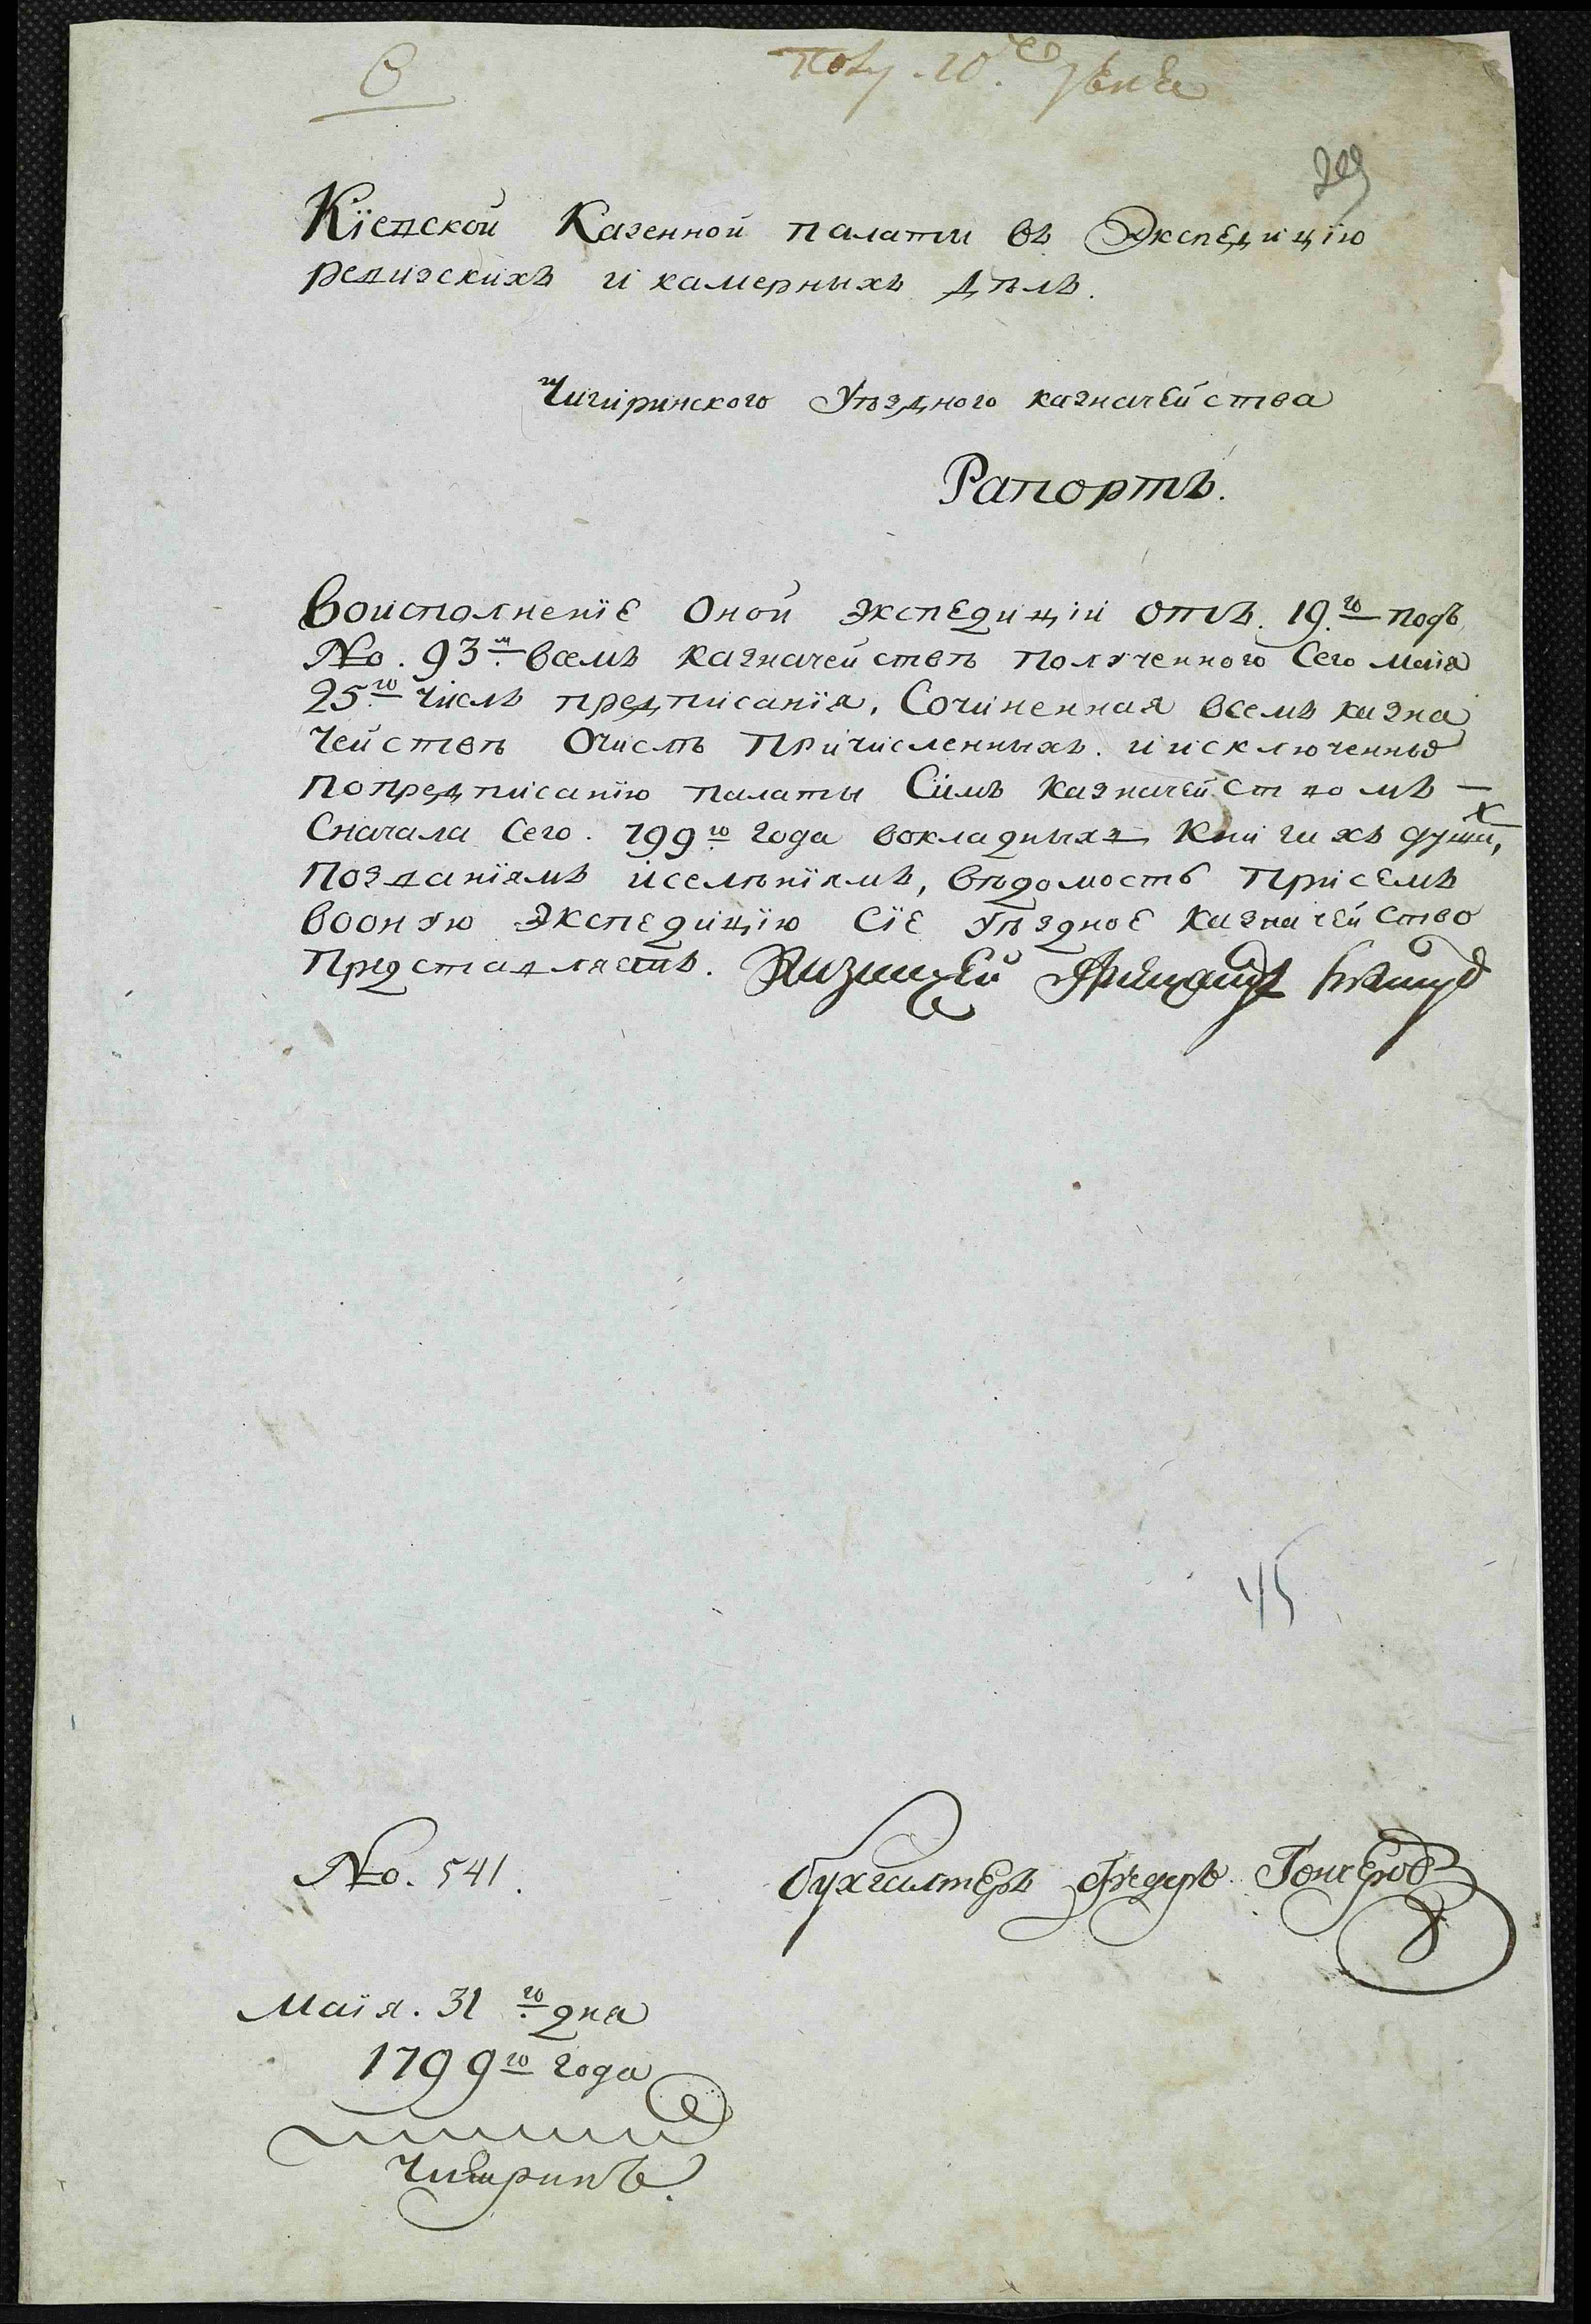 6
Полу. 10.го Іюня
Кїевской Казенной палаты въ Экспедицїю
ревизскихъ и камерныхъ дѣлъ.
Чигиринского Уѣздного казначейства
Рапортъ.
Воисполненїе Оной Экспедицїи отъ. 19.го подъ
No. 93м всемъ казначействѣ полученного Сего маїя
25го числъ предписанїя, Сочиненная всемъ казна
чействѣ Очислѣ причисленныхъ. и исключенные
попредписанїю палаты Симъ казначействомъ —
Сначала Сего. 799го года вокладныхъ книгахъ душах,
Позванїямъ иселенїямъ, вѣдомость Присемъ
вооную Экспедицїю Сїе Уѣздное казначейство
Представляетъ. Казначей
45
No. 541.
бухгалтеръ Федоръ Гончеровъ
Маїя. 31 го дня
1799го года
Чигиринъ.